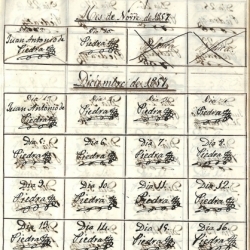 Mes de Novre de 1857,
Juan Antonio de Piedra
Piedra
Diciembre de 1857,
Dia 1º
Juan Antonio de Piedra
Piedra
Piedra
Piedra
Dia 5. Dia 6. Dia 7. Dia 8.
Piedra Piedra Piedra Piedra
Dia 9. Dia 10. Dia 11. Dia 12.
Piedra Piedra Piedra Piedra
Dia 13. Dia 14. Dia 15. Dia 16.
Piedra Piedra Piedra Piedra